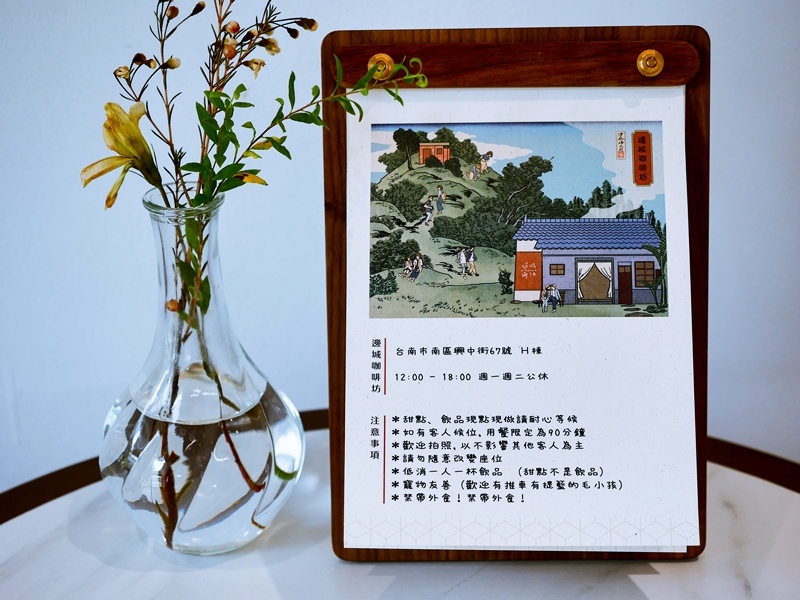 邊城咖啡坊
邊城咖啡坊
台南市南區興中街67號 H棟
12:00 - 18:00 週一週二公休
注意事項
*甜點、飲品現點現做請耐心等候
*如有客人候位,用餐限定為90分鐘
*歡迎拍照,以不影響其他客人為主
*請勿隨意改變座位
*低消一人一杯飲品 (甜點不是飲品)
*寵物友善 (歡迎有推車有提籃的毛小孩)
*禁帶外食!禁帶外食!